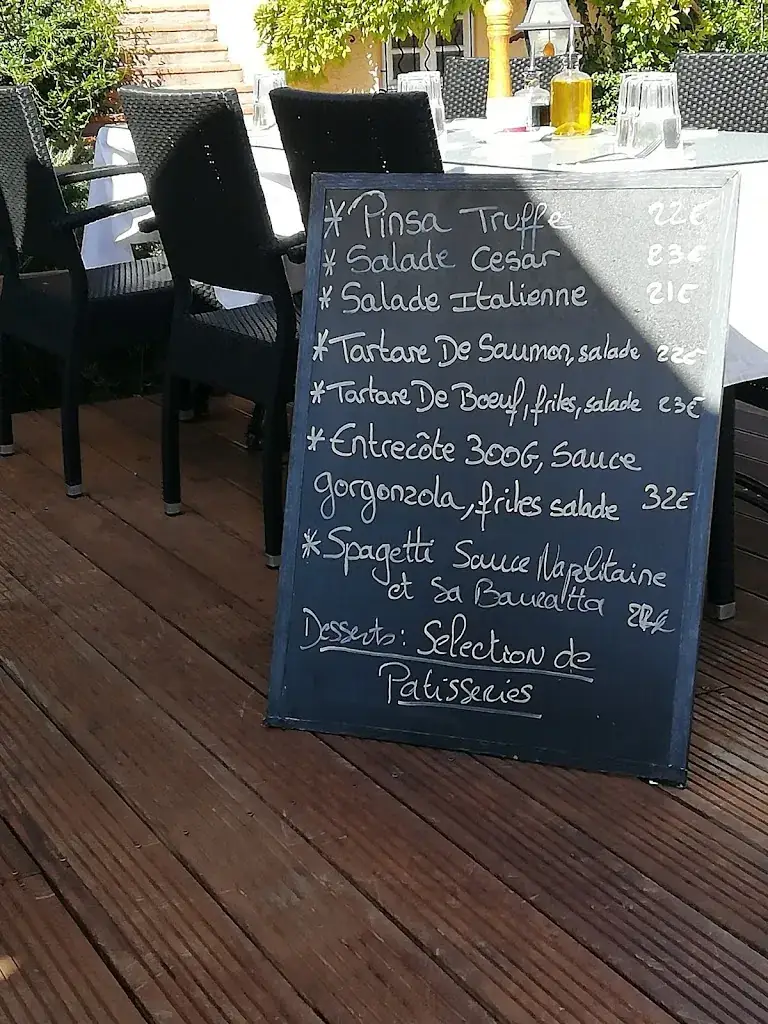 * Pinsa Truffe 22€
* Salade Cesar 23€
* Salade Italienne 21€
* Tartare De Saumon, salade 22€
* Tartare De Boeuf, frites, salade 23€
* Entrecôte 300G, Sauce
gorgonzola, frites salade 32€
* Spagetti Sauce Naplitaine
et Sa Buratta
Desserts: Selection de
Patisseries